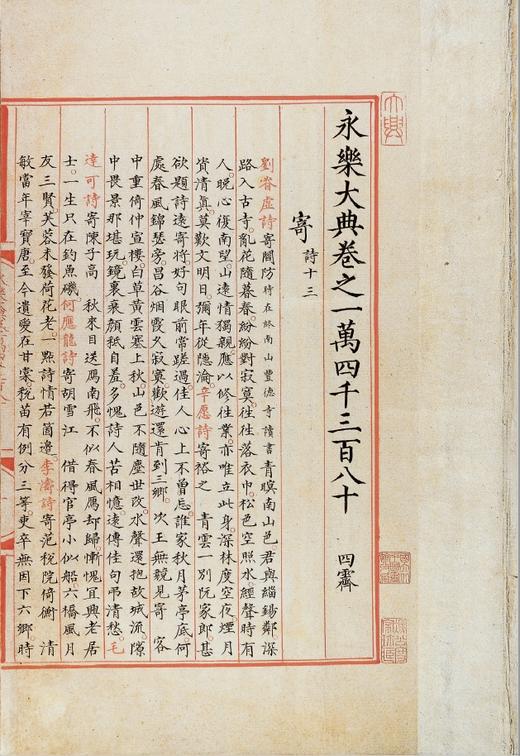 永樂大典卷之一萬四千三百八十 四霽
寄 詩十三
劉眘虛詩寄閻防 時在終南山豐德寺讀書 青暝南山色君與緇錫鄰深
路入古寺亂花隨暮春紛紛對寂寞往往落衣巾松色空照水經聲時有
人晚心復南望山遠情獨親應以修往業亦唯立此身深林度空夜煙月
資清真莫歎文明日彌年從隱淪辛愿詩寄裕之 青雲一別阮家郎甚
欲題詩遠寄將好句眼前常蹉過佳人心上不曾忘誰家秋月茅亭底何
處春風錦瑟旁昌谷烟霞久寂寞歡遊還肯到三鄉 次王無競見寄 客
中重倚仲宣樓白草黄雲塞上秋山邑不隨塵世改水聲還抱故城流隙
中畏景那堪玩鏡裏衰顔秪自羞多愧詩人苦相憶遠傳佳句弔清愁毛
達可詩寄陳子高 秋來目送鴈南飛不似春風鴈却歸慚愧宜興老居
士一生只在釣魚磯何應龍詩寄胡雪江 借得官亭小似船六橋風月
友三賢芙蓉未發荷花老一㸃詩情若箇邊李濤詩寄范稅院倚樹 清
敏當年宰寶唐至今遺愛在甘棠稅苗有例分三等吏卒無因下六鄉時